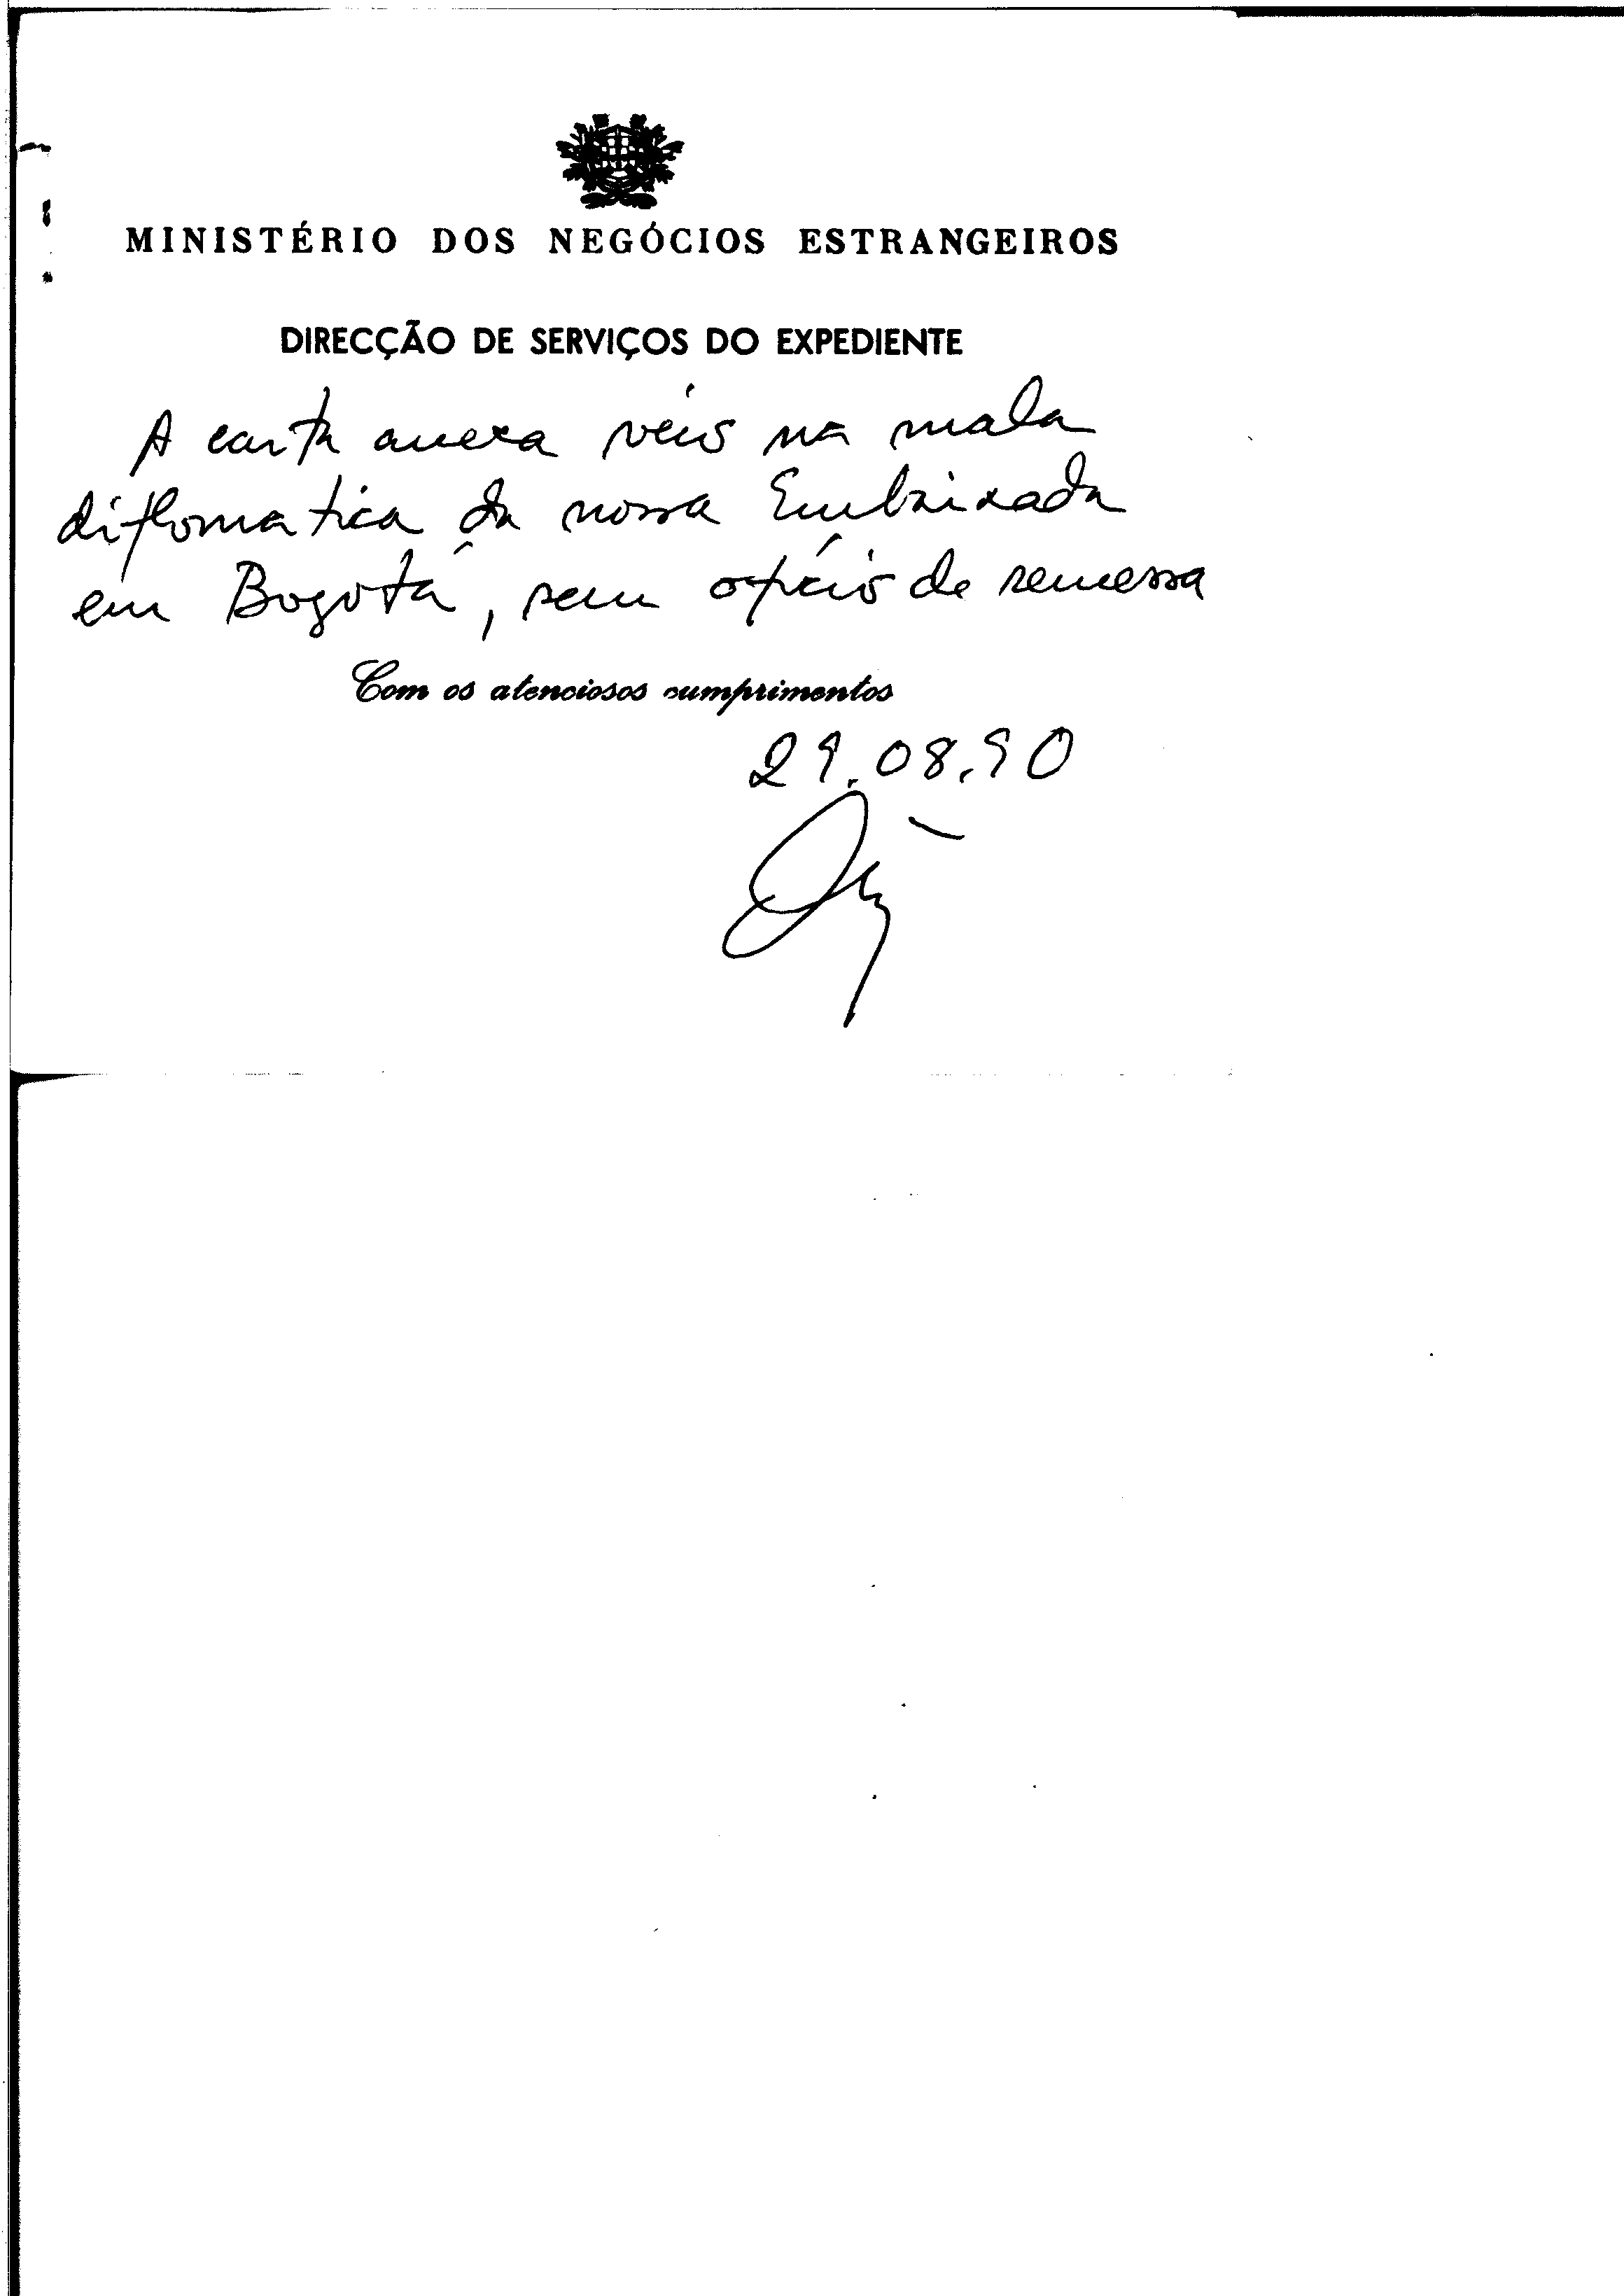 MINISTÉRIO DOS NEGÓCIOS ESTRANGEIROS
DIRECÇÃO DE SERVIÇOS DO EXPEDIENTE
A carta anexa veio na mala
diplomatica da nossa Embaixada
em Bogotá, sem ofício de remessa
Com os atenciosos cumprimentos
29.08.90